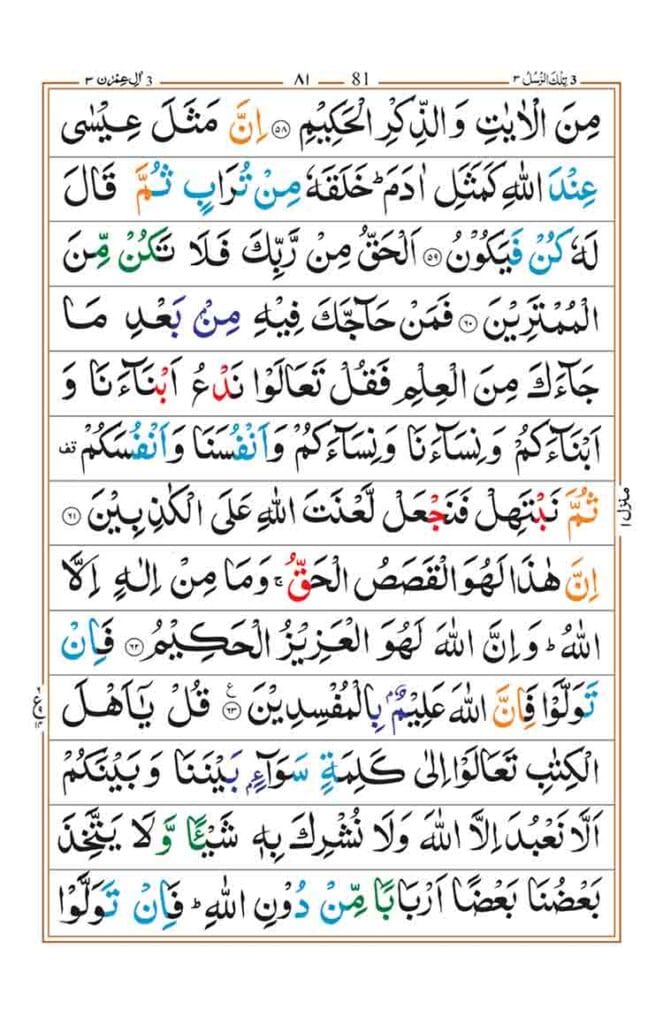 3 تِلْكَ الرُّسُلُ ٣ 81 ٨١ 3 اٰلِ عِمْرٰن ٣
مِنَ الْاٰيٰتِ وَالذِّكْرِ الْحَكِيْمِ ۝٥٨ اِنَّ مَثَلَ عِيْسٰى
عِنْدَ اللّٰهِ كَمَثَلِ اٰدَمَ ؕ خَلَقَهٗ مِنْ تُرَابٍ ثُمَّ قَالَ
لَهٗ كُنْ فَيَكُوْنُ ۝٥٩ اَلْحَقُّ مِنْ رَّبِّكَ فَلَا تَكُنْ مِّنَ
الْمُمْتَرِيْنَ ۝٦٠ فَمَنْ حَآجَّكَ فِيْهِ مِنْۢ بَعْدِ مَا
جَآءَكَ مِنَ الْعِلْمِ فَقُلْ تَعَالَوْا نَدْعُ اَبْنَآءَنَا وَ
اَبْنَآءَكُمْ وَنِسَآءَنَا وَنِسَآءَكُمْ وَاَنْفُسَنَا وَاَنْفُسَكُمْ تف
ثُمَّ نَبْتَهِلْ فَنَجْعَلْ لَّعْنَتَ اللّٰهِ عَلَى الْكٰذِبِيْنَ ۝٦١
منزل ١
اِنَّ هٰذَا لَهُوَ الْقَصَصُ الْحَقُّ ۚ وَمَا مِنْ اِلٰهٍ اِلَّا
اللّٰهُ ؕ وَاِنَّ اللّٰهَ لَهُوَ الْعَزِيْزُ الْحَكِيْمُ ۝٦٢ فَاِنْ
تَوَلَّوْا فَاِنَّ اللّٰهَ عَلِيْمٌۢ بِالْمُفْسِدِيْنَ ۝٦٣ ع قُلْ يٰۤاَهْلَ
الْكِتٰبِ تَعَالَوْا اِلٰى كَلِمَةٍ سَوَآءٍۢ بَيْنَنَا وَبَيْنَكُمْ
اَلَّا نَعْبُدَ اِلَّا اللّٰهَ وَلَا نُشْرِكَ بِهٖ شَيْـًٔا وَّلَا يَتَّخِذَ
بَعْضُنَا بَعْضًا اَرْبَابًا مِّنْ دُوْنِ اللّٰهِ ؕ فَاِنْ تَوَلَّوْا